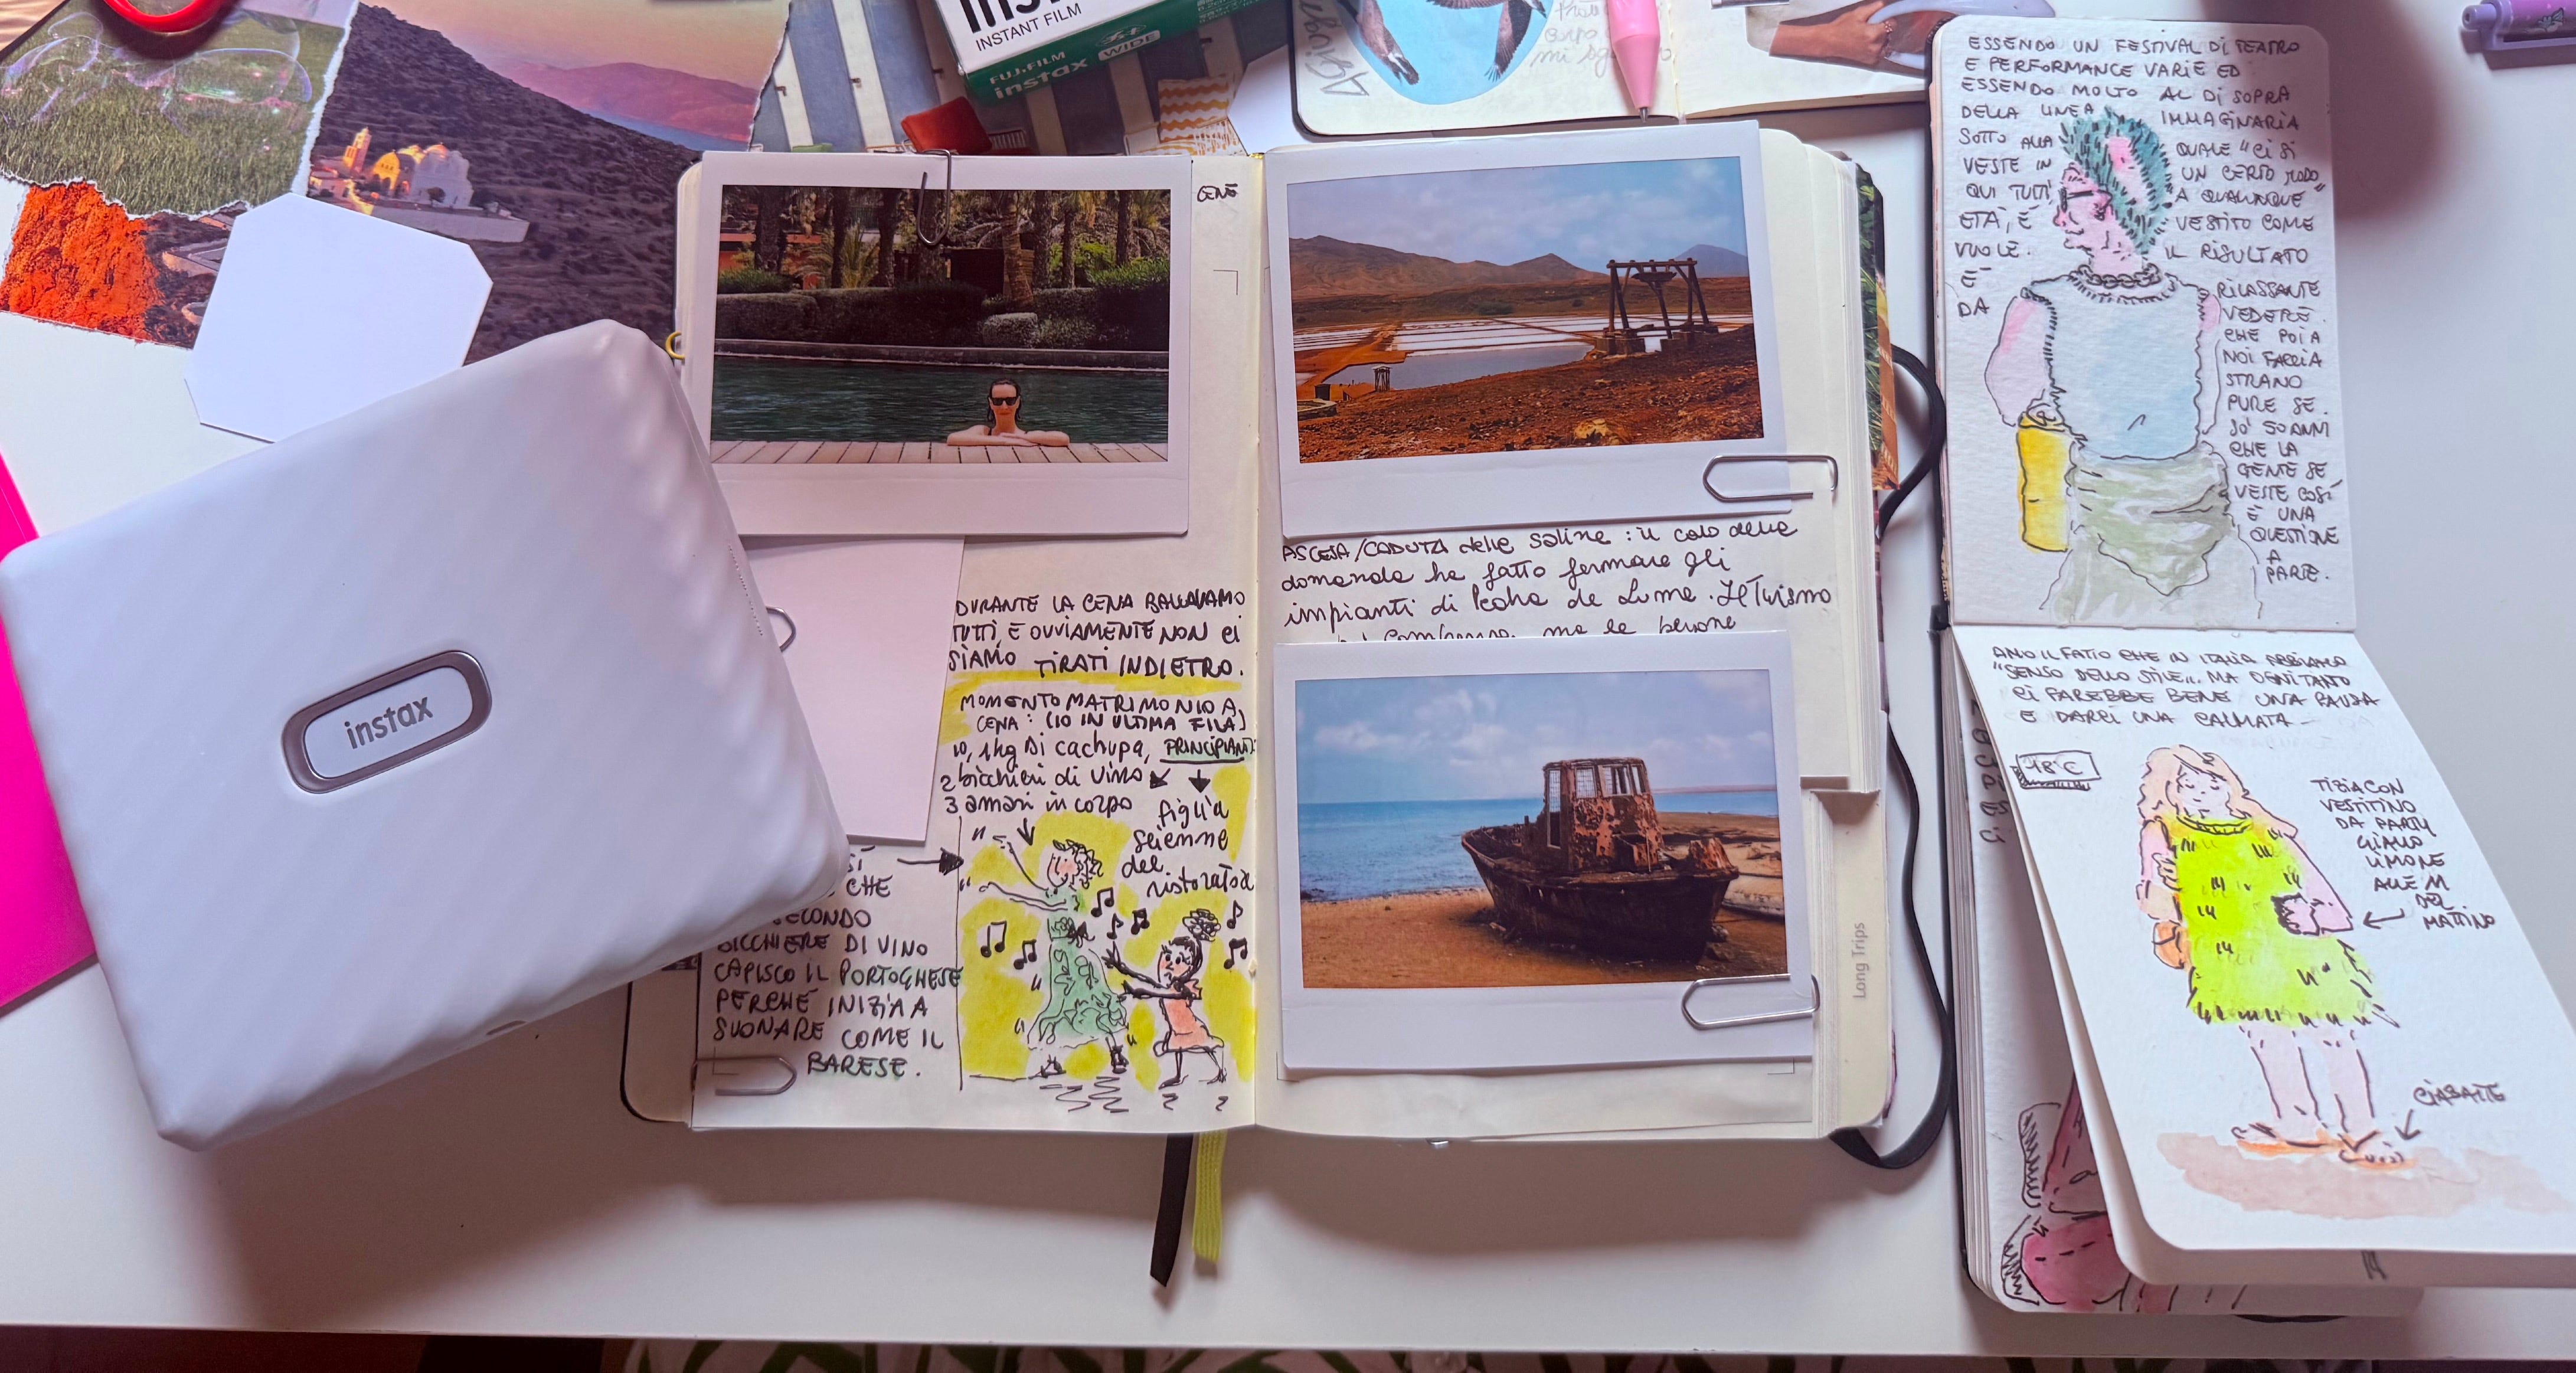 INSTANT FILM
FUJIFILM
instax WIDE
instax
CENE
DURANTE LA CENA BALLAVAMO
TUTTI, E OVVIAMENTE NON CI
SIAMO TIRATI INDIETRO.
MOMENTO MATRIMONIO A
CENA: (IO IN ULTIMA FILA)
IO, 1kg di cachupa, PRINCIPIANTI
2 bicchieri di vino
3 amari in corpo
figlia
seienne
del
ristoratore
SÌ
CHE
SECONDO
BICCHIERE DI VINO
CAPISCO IL PORTOGHESE
PERCHÉ INIZIA A
SUONARE COME IL
BARESE.
ASCESA/CADUTA delle saline: il calo della
domanda ha fatto fermare gli
impianti di Pedra de Lume. Il Turismo
ma le persone
Long Trips
ESSENDO UN FESTIVAL DI TEATRO
E PERFORMANCE VARIE ED
ESSENDO MOLTO AL DI SOPRA
DELLA LINEA IMMAGINARIA
SOTTO ALLA QUALE "CI SI
VESTE IN UN CERTO MODO"
QUI TUTTI, A QUALUNQUE
ETÀ, È VESTITO COME
VUOLE. IL RISULTATO
È RILASSANTE
DA VEDERE.
CHE POI A
NOI FACCIA
STRANO
PURE SE
SO' 50 ANNI
CHE LA
GENTE SE
VESTE COSÌ
È UNA
QUESTIONE
A
PARTE.
AMO IL FATTO CHE IN ITALIA ABBIAMO
"SENSO DELLO STILE"... MA OGNI TANTO
CI FAREBBE BENE UNA PAUSA
E DARCI UNA CALMATA
18°C
TIZIA CON
VESTITINO
DA PARTY
GIALLO
LIMONE
ALLE 11
DEL
MATTINO
CIABATTE